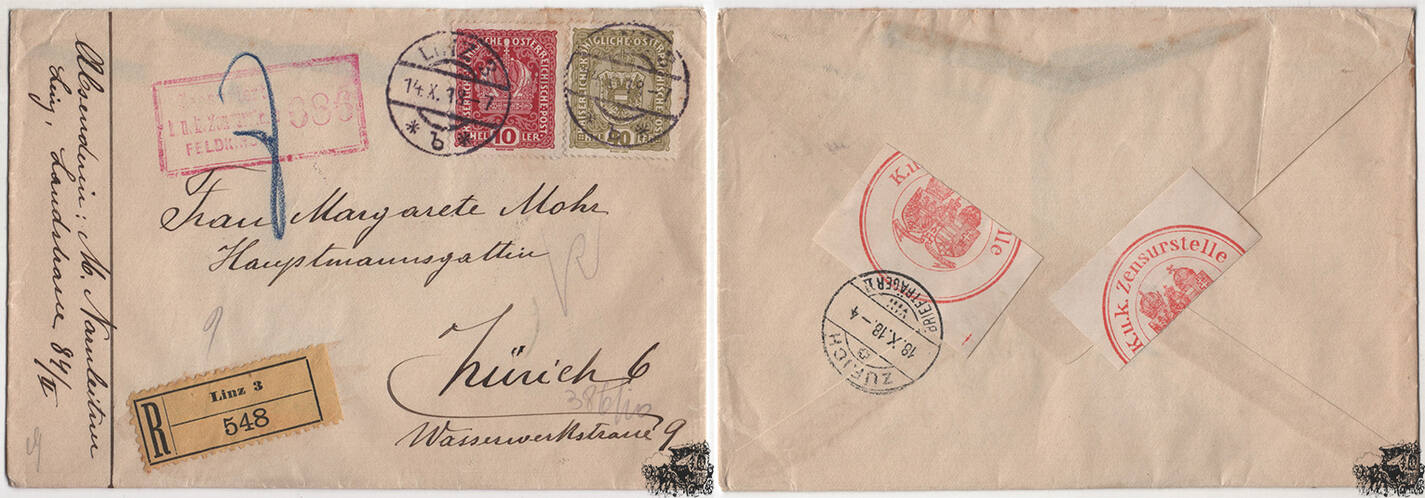 Absenderin: M. Narnleitner
Linz, Landstrasse 84/II
Zensuriert
k.u.k. Zensurstelle
FELDKIRCH
386
LINZ 3
14.X.18-7
* b *
KAISERLICHE KÖNIGLICHE ÖSTERREICHISCHE POST
HELLER
10
KAISERLICHE KÖNIGLICHE ÖSTERREICHISCHE POST
HELLER
40
* b *
Frau Margarete Mohr
Hauptmannsgattin
Zürich 6
Wasserwerkstraße 9
386/10
9
R
Linz 3
548
K.u.
lle
K.u.k. Zensurstelle
ZÜRICH
18.X.18.-4
VIII
BRIEFTRÄGER